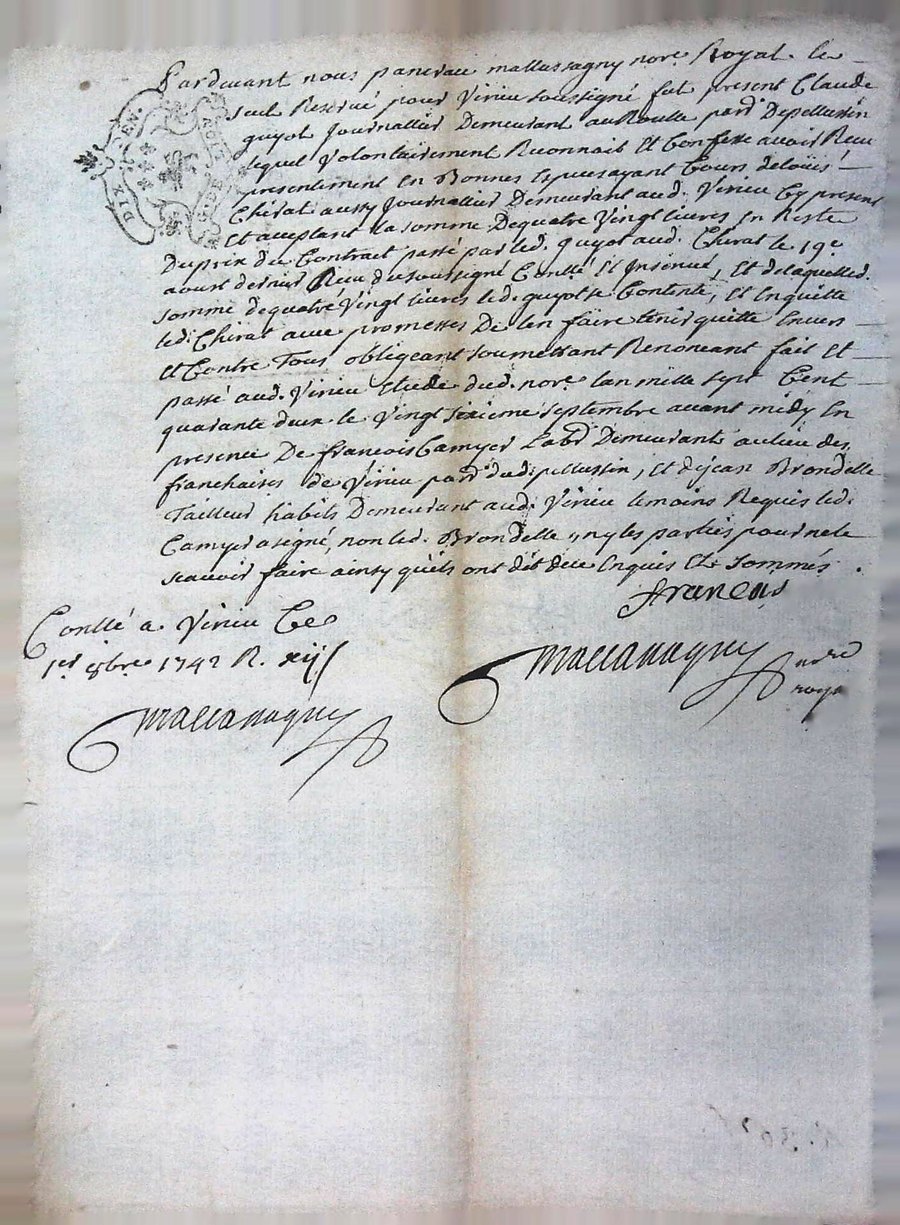 Pardevant nous pancrace mallassagny nore. Royal le
seul Reservé pour Virieu soussigné fut present Claude
guyot Journallier Demeurant au Roulle parr. Depellussin
lequel Volontairement Reconnait Et Confesse avoir Receu
presentement En Bonnes Espèces ayant Cours de
Chirat aussy Journallier Demeurant aud. Virieu Cy present
Et acceptant la somme Dequatre Vingt livres En Reste
Du prix du Contract passé par led. guyot aud. Chirat le 19e
aoust dernier Receu du soussigné Contllé Et Insinué, Et delaquelled.
somme dequatre Vingt livres led. guyot se Contente, Et Enquitte
led. Chirat avec promesses De len faire tenir quitte Envers
Et Contre Tous obligeant soumettant Renonceant fait Et
passé aud. Virieu Etude dud. nore. lan mille sept Cent
quarante deux le Vingt sixieme septembre avant midy En
presence De francois Camyer Labr. Demeurant au lieu des
franchaises de Virieu parr. dud. pellussin, Et de jean Brondelle
Tailleur habits Demeurant aud. Virieu temoins Requis led.
Camyer a signé, non led. Brondelle ny les parties pour ne le
scavoir faire ainsy quils ont dit de ce Enquis Et sommés.
francois
Contllé a Virieu Ce
1er. 8bre. 1742 R. xij s
mallassagny
mallassagny nore
roya
DIX DEN.